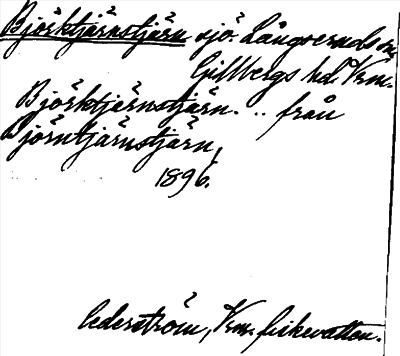 Björktjärnstjärn sjö. Långseruds sn
Gillbergs hd. Vrm.
Björktjärnstjärn. .. från
Björntjärnstjärn,
1896.
Cederström, Vrm. fiskevatten.